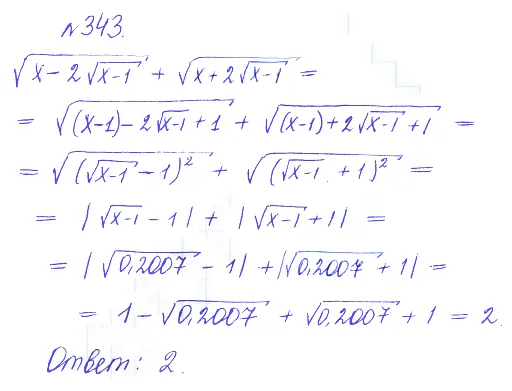 №343.
√(x-2√(x-1)) + √(x+2√(x-1)) =
= √((x-1)-2√(x-1)+1) + √((x-1)+2√(x-1)+1) =
= √((√(x-1)-1)²) + √((√(x-1)+1)²) =
= |√(x-1)-1| + |√(x-1)+1| =
= |√0,2007-1| + |√0,2007+1| =
= 1-√0,2007 + √0,2007+1 = 2.
Ответ: 2.